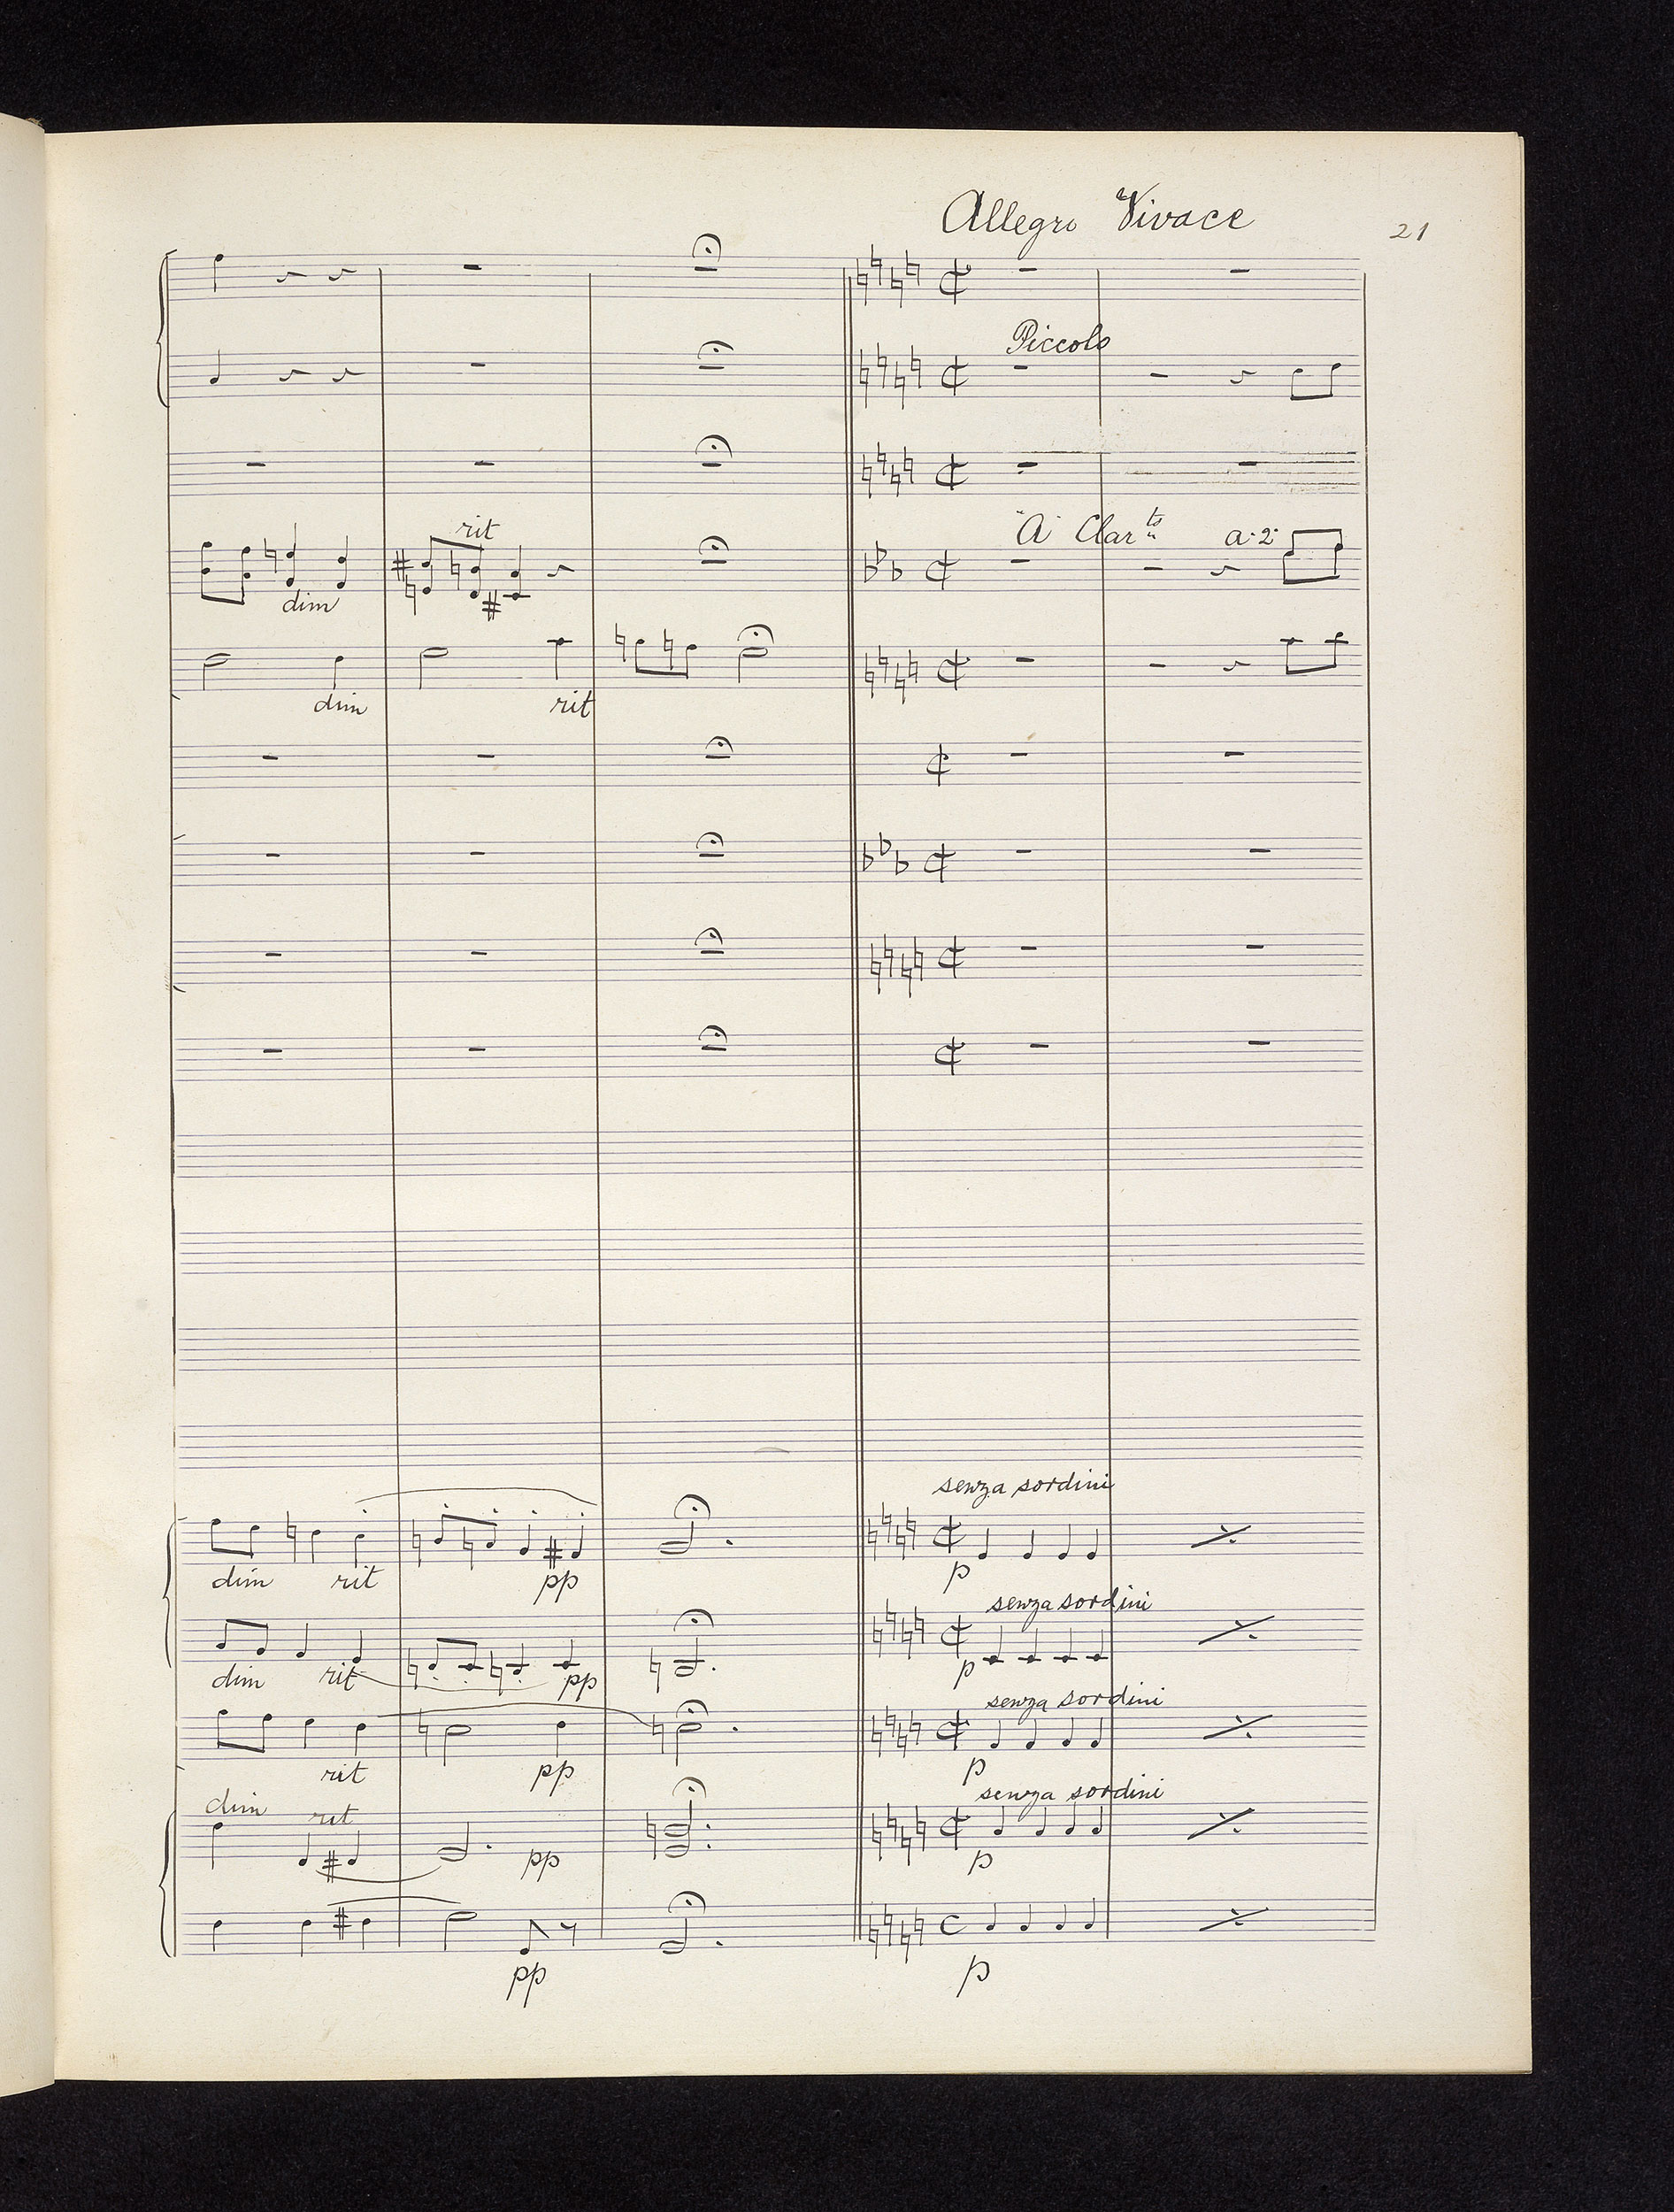 Allegro Vivace
21
Piccolo
rit
"A" Clar.ts
a. 2.
dim
dim
rit
senza sordini
dim
rit
pp
p
senza sordini
dim
rit
pp
p
senza sordini
rit
pp
p
senza sordini
dim
rit
pp
p
pp
p